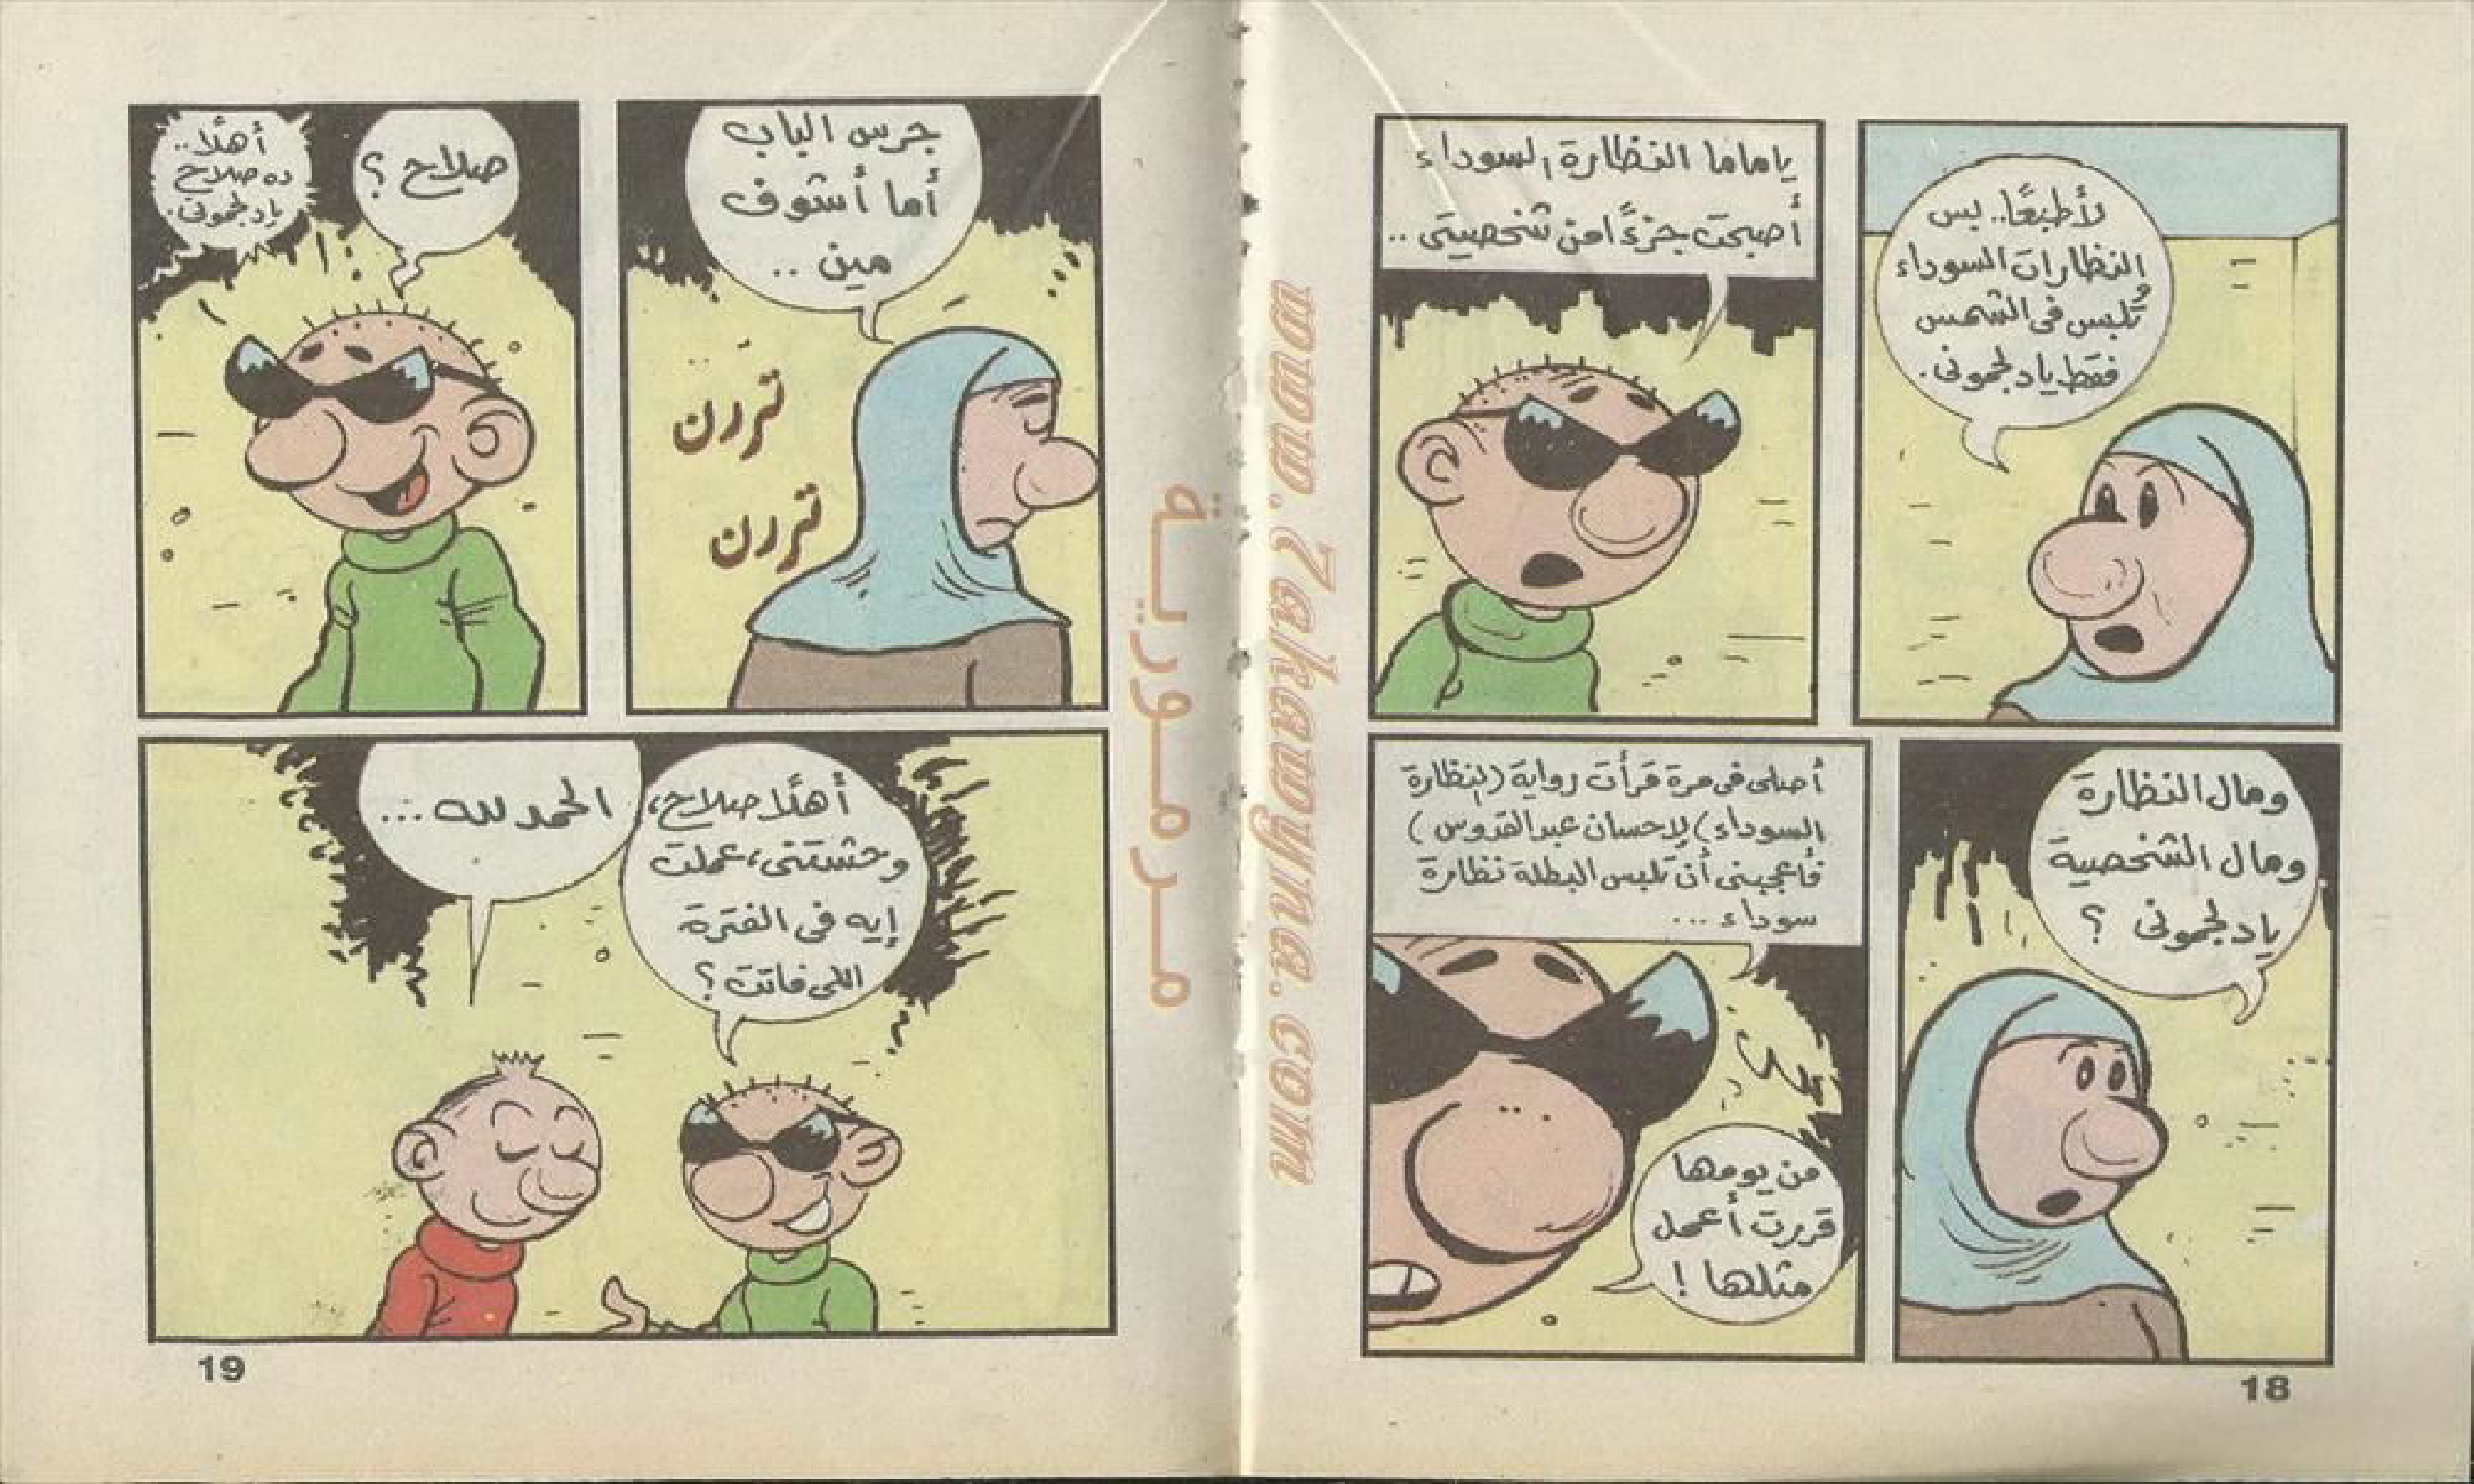 لأ طبعًا.. بس
النظارات السوداء
تُلبس فى الشمس
فقط يا دلجمونى.
يا ماما النظارة السوداء
أصبحت جزءًا من شخصيتى ..
ومال النظارة
ومال الشخصية
يا دلجمونى ؟
أصلى فى مرة قرأت رواية (النظارة
السوداء) لإحسان عبد القدوس)
فأعجبنى أن تلبس البطلة نظارة
سوداء ...
من يومها
قررت أعمل
مثلها !
18
www.Zakawyna.com
مرمورية
جرس الباب
أما أشوف
مين ..
تررن
تررن
صلاح ؟
أهلًا..
ده صلاح
يا دلجمونى.
أهلًا صلاح،
وحشتنى، عملت
إيه فى الفترة
اللى فاتت ؟
الحمد لله ...
19